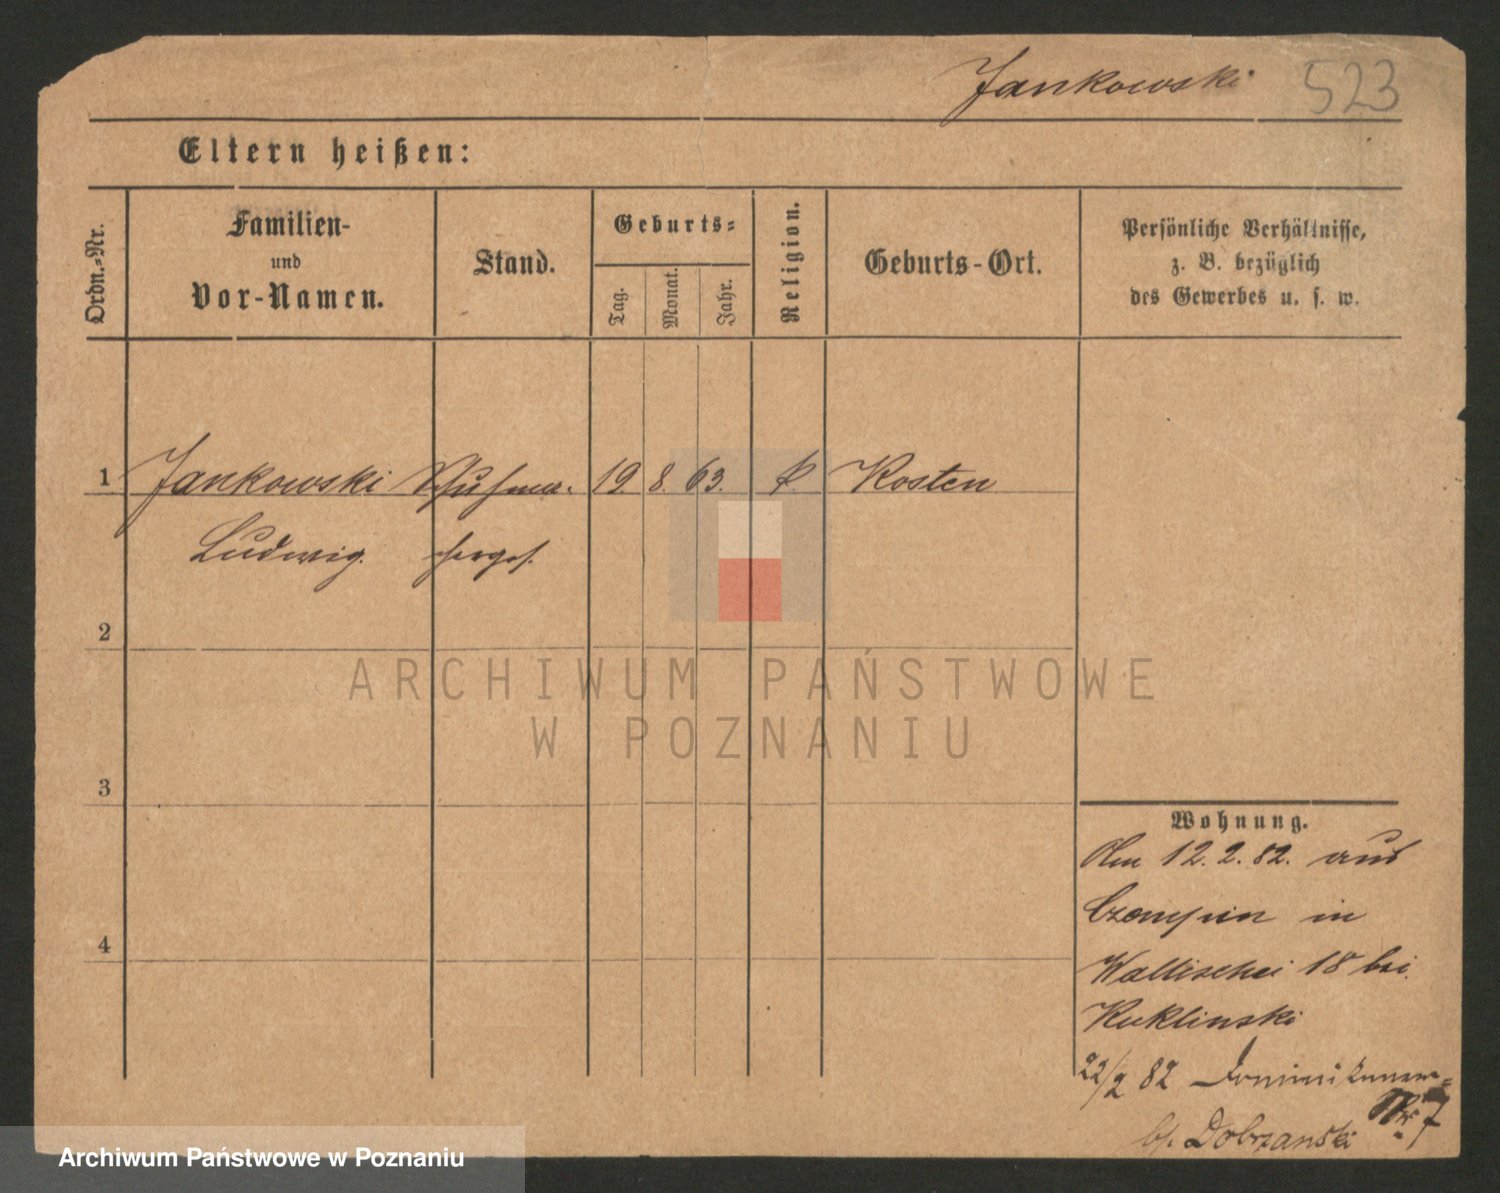 Jankowski 523
Eltern heißen:
Ordn.-Nr.
Familien-
und
Vor-Namen.
Stand.
Geburts-
Tag.
Monat.
Jahr.
Religion.
Geburts-Ort.
Persönliche Verhältnisse,
z. B. bezüglich
des Gewerbes u. s. w.
1 Jankowski Schuhma- 19. 8. 63. k. Kosten
Ludwig. cherges.
2
3
4
Wohnung.
Am 12. 2. 82. aus
Czempin in
Wallischei 18 bei
Kuklinski
22/2 82 Dominikaner-
Nr. 7
bs. Dobrzanski
ARCHIWUM PAŃSTWOWE
W POZNANIU
Archiwum Państwowe w Poznaniu